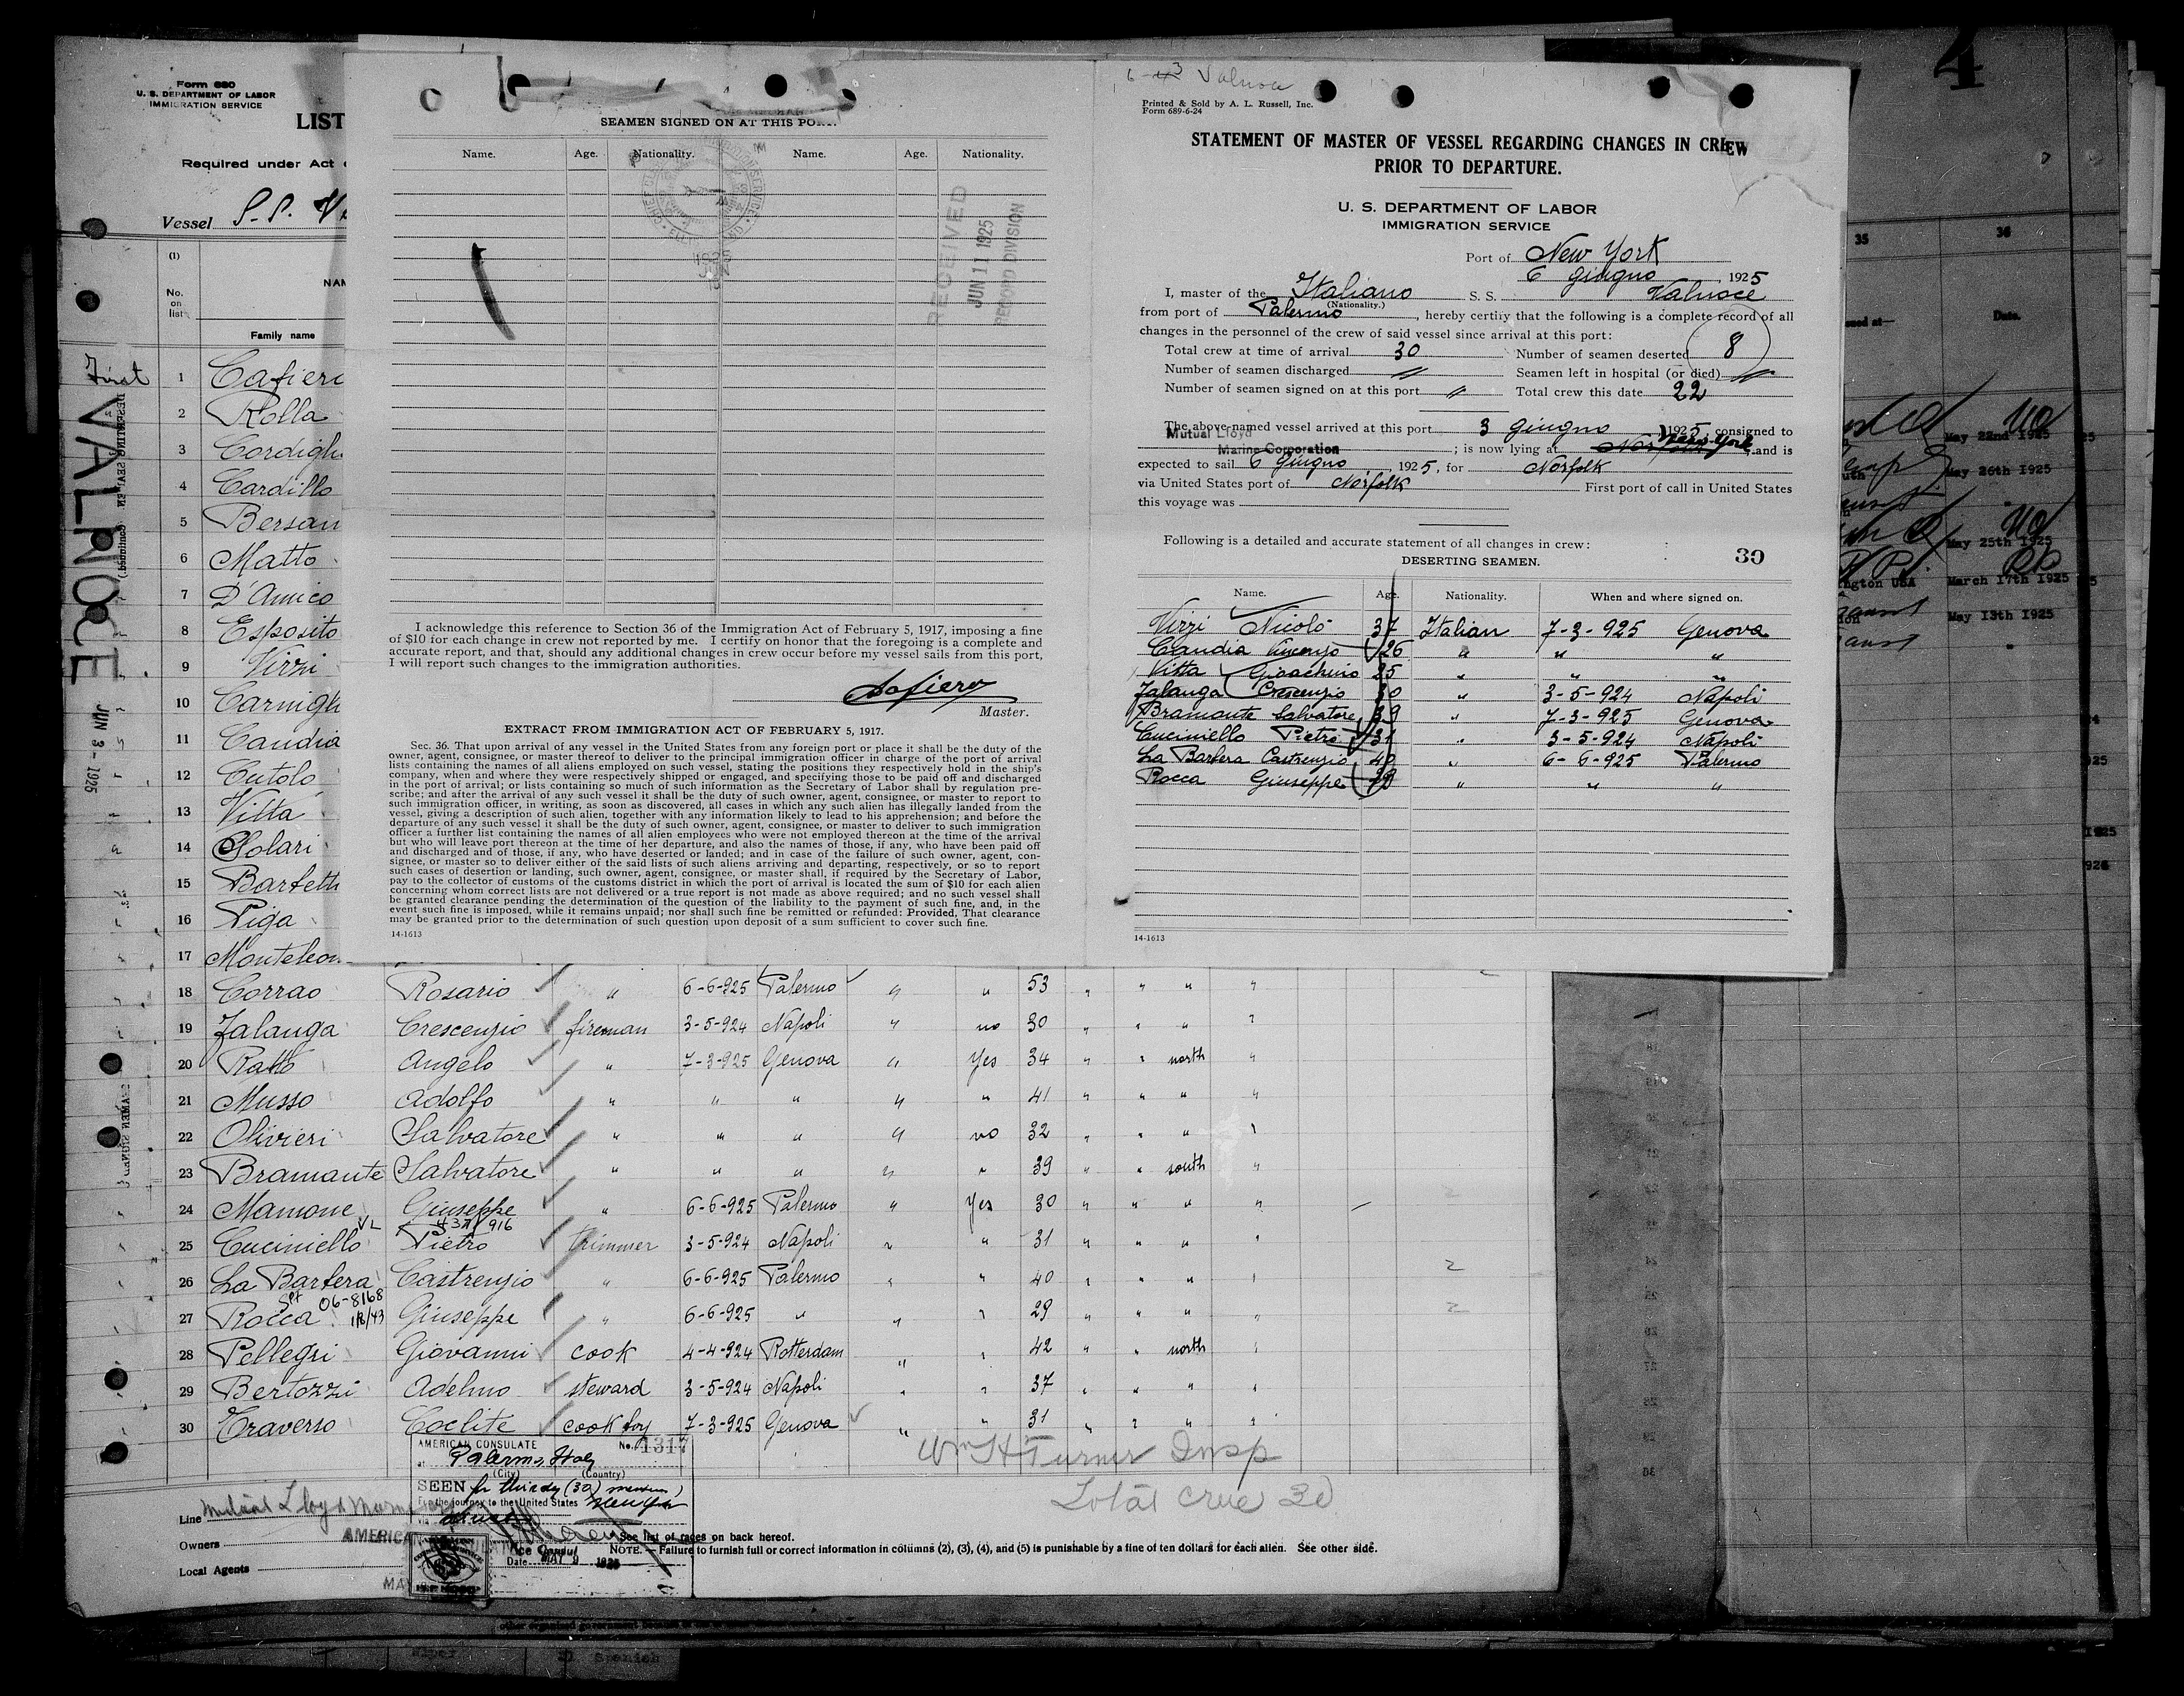 Form 680
U. S. DEPARTMENT OF LABOR
IMMIGRATION SERVICE
LIST
Required under Act
Vessel S.S.
(1)
No. on list
Family name
First
VALNOCE
JUN 3 - 1925
1 Cafiero
2 Rolla
3 Cordigh
4 Cardillo
5 Bersan
6 Matto
7 D'Amico
8 Esposito
9 Virzi
10 Carnigh
11 Candia
12 Cutolo
13 Vitta
14 Solari
15 Barbetti
16 Piga
17 Monteleon
18 Corrao Rosario " 6-6-925 Palermo " " 53 " " " "
19 Jalanga Crescenzio fireman 3-5-924 Napoli " no 30 " " " "
20 Ratto Angelo " 7-3-925 Genova " Yes 34 " " north "
21 Musso Adolfo " " " " " 41 " " " "
22 Olivieri Salvatore " " " " no 32 " " " "
23 Bramante Salvatore " " " " " 39 " " south "
24 Mamone Giuseppe " 6-6-925 Palermo " Yes 30 " " " "
25 Cuciniello Pietro trimmer 3-5-924 Napoli " " 31 " " " "
26 La Barbera Castrenzio " 6-6-925 Palermo " " 40 " " " "
06-8168
27 Rocca Giuseppe " 6-6-925 " " " 29 " " " "
28 Pellegri Giovanni cook 4-4-924 Rotterdam " " 42 " " north "
29 Bertozzi Adelmo steward 3-5-924 Napoli " " 37 " " " "
30 Traverso Coclite cook boy 7-3-925 Genova " " 31 " " " "
AMERICAN CONSULATE No. 1317
at Palermo, Italy
(City) (Country)
SEEN for thirdy (30) members
For the journey to the United States New York
Vice Consul
Date MAY 9 1925
Wm H Turner Insp
Total crue 30
Line Mutual Lloyd Marine
Owners
Local Agents
See list of races on back hereof.
NOTE.—Failure to furnish full or correct information in columns (2), (3), (4), and (5) is punishable by a fine of ten dollars for each alien. See other side.
SEAMEN SIGNED ON AT THIS PORT.
Name. Age. Nationality. Name. Age. Nationality.
RECEIVED
JUN 11 1925
RECORD DIVISION
I acknowledge this reference to Section 36 of the Immigration Act of February 5, 1917, imposing a fine
of $10 for each change in crew not reported by me. I certify on honor that the foregoing is a complete and
accurate report, and that, should any additional changes in crew occur before my vessel sails from this port,
I will report such changes to the immigration authorities.
Cafiero
Master.
EXTRACT FROM IMMIGRATION ACT OF FEBRUARY 5, 1917.
Sec. 36. That upon arrival of any vessel in the United States from any foreign port or place it shall be the duty of the
owner, agent, consignee, or master thereof to deliver to the principal immigration officer in charge of the port of arrival
lists containing the names of all aliens employed on such vessel, stating the positions they respectively hold in the ship's
company, when and where they were respectively shipped or engaged, and specifying those to be paid off and discharged
in the port of arrival; or lists containing so much of such information as the Secretary of Labor shall by regulation pre-
scribe; and after the arrival of any such vessel it shall be the duty of such owner, agent, consignee, or master to report to
such immigration officer, in writing, as soon as discovered, all cases in which any such alien has illegally landed from the
vessel, giving a description of such alien, together with any information likely to lead to his apprehension; and before the
departure of any such vessel it shall be the duty of such owner, agent, consignee, or master to deliver to such immigration
officer a further list containing the names of all alien employees who were not employed thereon at the time of the arrival
but who will leave port thereon at the time of her departure, and also the names of those, if any, who have been paid off
and discharged and of those, if any, who have deserted or landed; and in case of the failure of such owner, agent, con-
signee, or master so to deliver either of the said lists of such aliens arriving and departing, respectively, or so to report
such cases of desertion or landing, such owner, agent, consignee, or master shall, if required by the Secretary of Labor,
pay to the collector of customs of the customs district in which the port of arrival is located the sum of $10 for each alien
concerning whom correct lists are not delivered or a true report is not made as above required; and no such vessel shall
be granted clearance pending the determination of the question of the liability to the payment of such fine, and, in the
event such fine is imposed, while it remains unpaid; nor shall such fine be remitted or refunded: Provided, That clearance
may be granted prior to the determination of such question upon deposit of a sum sufficient to cover such fine.
14-1613
Valnoce
Printed & Sold by A. L. Russell, Inc.
Form 689-6-24
STATEMENT OF MASTER OF VESSEL REGARDING CHANGES IN CREW
PRIOR TO DEPARTURE.
U. S. DEPARTMENT OF LABOR
IMMIGRATION SERVICE
Port of New York
6 giugno, 1925
I, master of the Italiano S. S. Valnoce
(Nationality.)
from port of Palermo, hereby certify that the following is a complete record of all
changes in the personnel of the crew of said vessel since arrival at this port:
Total crew at time of arrival 30 Number of seamen deserted 8
Number of seamen discharged " Seamen left in hospital (or died) "
Number of seamen signed on at this port " Total crew this date 22
The above-named vessel arrived at this port 3 giugno, 1925, consigned to
Mutual Lloyd
Marine Corporation; is now lying at New-York and is
expected to sail 6 giugno, 1925, for Norfolk
via United States port of Norfolk First port of call in United States
this voyage was
Following is a detailed and accurate statement of all changes in crew:
DESERTING SEAMEN. 30
Name. Age. Nationality. When and where signed on.
Virzi Nicolò 37 Italian 7-3-925 Genova
Candia Vincenzo 26 " " "
Vitta Gioachino 25 " " "
Jalanga Crescenzio 30 " 3-5-924 Napoli
Bramante Salvatore 39 " 7-3-925 Genova
Cuciniello Pietro 31 " 3-5-924 Napoli
La Barbera Castrenzio 40 " 6-6-925 Palermo
Rocca Giuseppe 29 " " "
14-1613
4
35 36
Date.
May 22nd 1925
May 26th 1925
May 25th 1925
March 17th 1925
May 13th 1925
Spanish